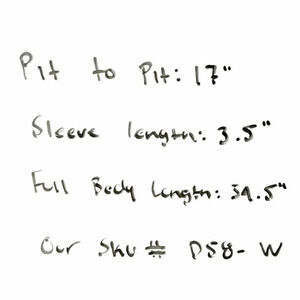 Pit to Pit: 17"
Sleeve length: 3.5"
Full Body Length: 34.5"
Our Sku # D58-W